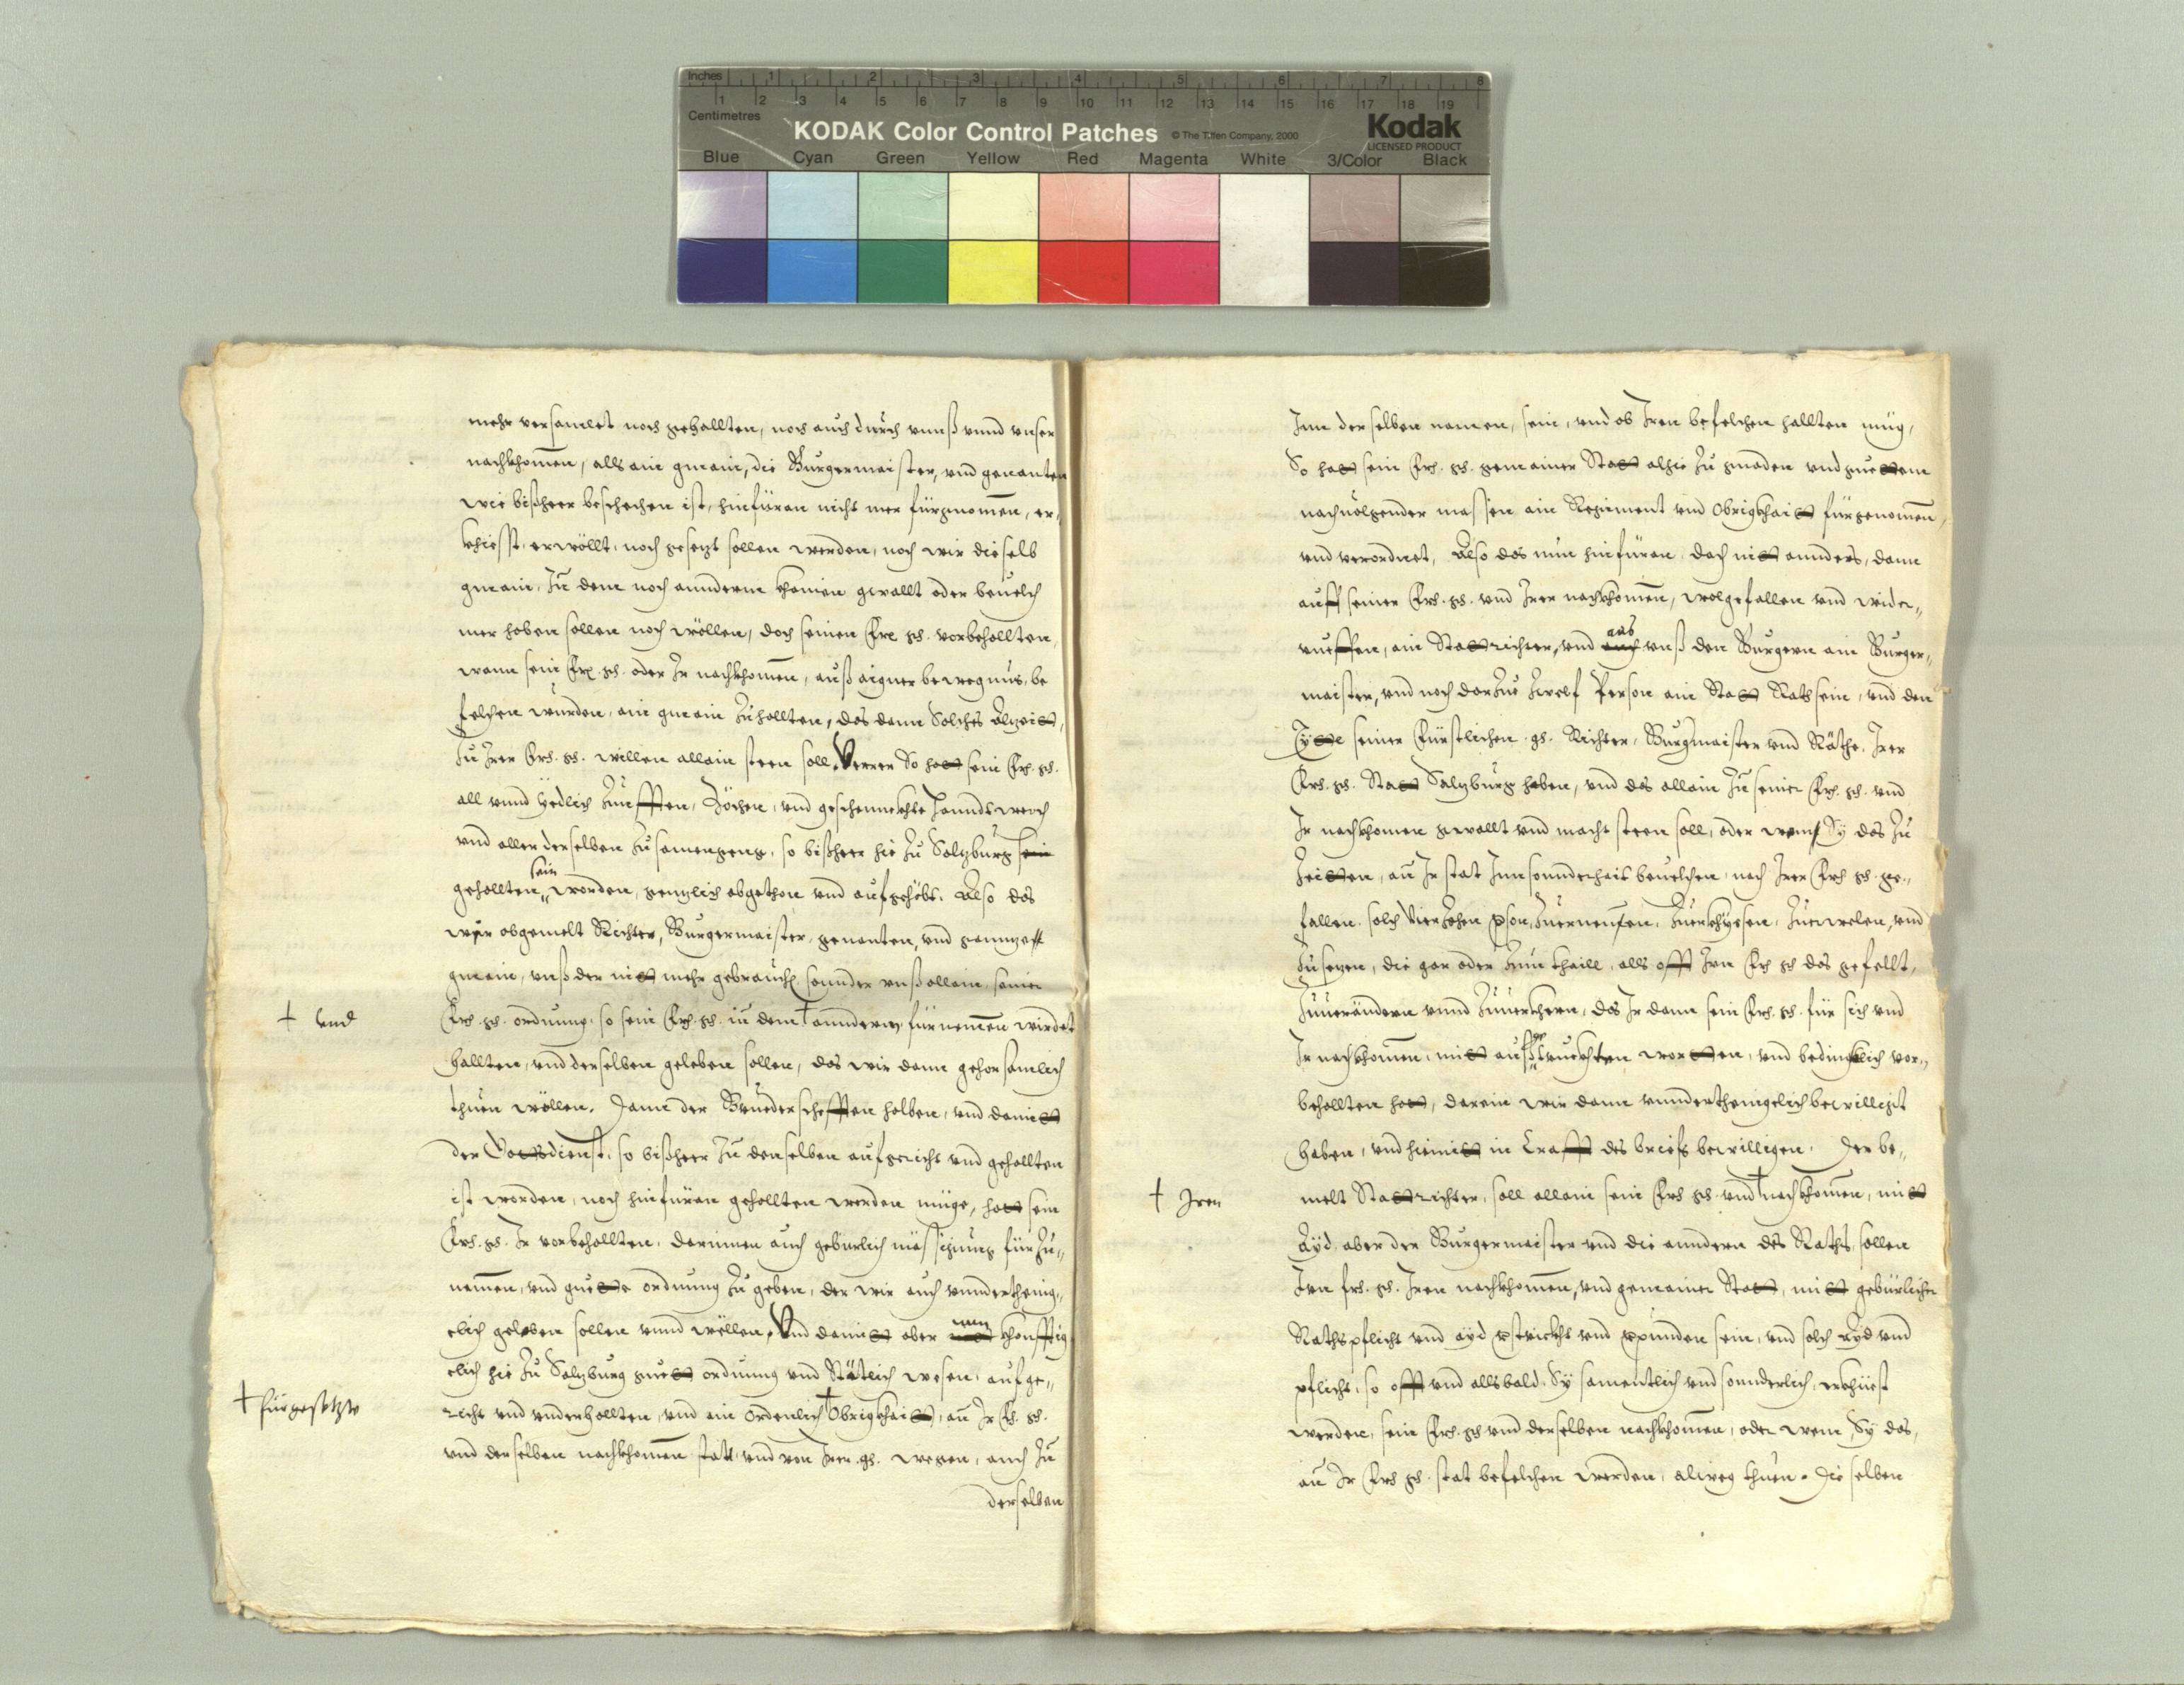 Inches 1 2 3 4 5 6 7 8
Centimetres 1 2 3 4 5 6 7 8 9 10 11 12 13 14 15 16 17 18 19
KODAK Color Control Patches © The Tiffen Company, 2000 Kodak
LICENSED PRODUCT
Blue Cyan Green Yellow Red Magenta White 3/Color Black
mehr versamlet noch gehallten, noch auch durch vnnß vnnd vnser
nachkhomen, alls ain gmain, die Burgermaister, vnd genanten
wie bißheer beschechen ist, hinfüran nicht mer fürgnomen, er,
khiesst, erwöllt, noch gesetzt sollen werden, noch wir dieselb
gmain, zu dem noch annderm khainen gwallt oder beuelch
mer haben sollen noch wöllen, doch seinen Frl. gl. vorbehallten,
wann sein Frl. gl. oder Ir nachkhomen, auß aigner bewegnus, be
felhen wurden, ain gmain zuhallten, das dann Solchs Alzeitt,
zu Irer Frl. gl. willen allain steen soll. Verrer So hatt sein Frl. gl.
all vnnd yedlich Zunfften, Zöchen, vnd geschennckhte Hanndtwerch
vnd aller derselben zusamengeng, so bißheer hie zu Salzburg sein
sein
gehallten worden, genzlich abgethon vnd aufgehebt. Also das
wir obgemelt Richter, Burgermaister, genanten, vnd gannze
gmain, vnß der nitt mehr gebrauchen, sonnder vnß allain seiner
† vnd
Frl. gl. ordnung, so sein Frl. gl. in dem † annderm fürnemen wirdet
hallten, vnd derselben geleben sollen, das wir dann gehorsamlich
thuen wöllen. Dann der Bruederschafften halben, vnd damitt
der Gottsdienst, so bißheer zu denselben aufgericht vnd gehallten
ist worden, noch hinfüran gehallten werden müge, hatt sein
Frl. gl. Ir vorbehallten, darinnen auch gebürlich mässigung fürzu„
nemen, vnd guette ordnung zu geben, der wir auch vnnderthenig„
clich geleben sollen vnnd wöllen, Vnd damitt aber nun khönfftig
clich hie zu Salzburg guett ordnung vnd Stätlich wesen, aufge„
† fürgesetzte
richt vnd vnderhallten, vnd ain ordenlich † Obrigkhaitt, an Ir Frl. gl.
vnd derselben nachkhomen statt, vnd von Irer gl. wegen, auch zu
derselben
Inn derselben namen, sein, vnd ob Iren befelchen hallten müg,
So hatt sein Frl. gl. gemainer Statt alhie zu gnaden vnd guettem
nachuolgender massen ain Regiment vnd Obrigkhaitt fürgenomen,
vnd verordnet, Also das nun hinfüran, doch nitt annders, dann
auff seiner Frl. gl. vnd Irer nachkhomen, wolgefallen vnd wider„
aus
rueffen, ain Stattrichter, vnd auch vnß den Burgern ain Burger„
maister, vnd noch darzue zwelf Person ain Statt Rath sein, vnd den
Tittl seiner Fürstlichen gl. Richter, Burgmaister vnd Räthe, Irer
Frl. gl. Statt Salzburg haben, vnd das allain zu seiner Frl. gl. vnd
Ir nachkhomen gwallt vnd macht steen soll, oder wem Sy das zu
Zeitten, an Ir stat Innsonnderhait beuelchen, nach Irer Frl. gl. ge„
fallen, solch Vierzehen person, zuernennen, zuerkhyesen, zuerwelen, vnd
zusetzen, die gar oder zum thaill, alls offt Irn Frl. gl. das gefellt,
zuuerändern vnnd zuuerkhern, das Ir dann sein Frl. gl. für sich vnd
Ir nachkhomen, mitt außtruckhten wortten, vnd bedinklich vor„
behallten hatt, darein wir dann vnnderthenigclich bewilligt
haben, vnd hiemitt in Crafft des briefs bewilligen. Der be„
† Iren
melt Stattrichter, soll allain sein Frl. gl. vnd † nachkhomen, mitt
Ayd, aber der Burgermaister vnd die anndern des Raths, sollen
Irn frl. gl. Iren nachkhomen, vnd gemainer Statt, mitt gebürlicher
Rathspflicht vnd ayd verstrickht vnd verpunden sein, vnd solch Ayd vnd
pflicht, so offt vnd allsbald Sy samentlich vnd sonnderlich, erkhiest
werden, sein Frl. gl. vnd derselben nachkhomen, oder wem Sy das,
an Ir Frl. gl. stat befelchen werden, alweg thuen. Die selben